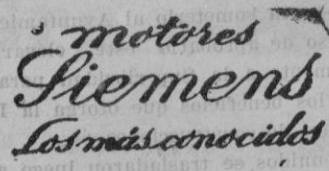 motores
Siemens
los más conocidos